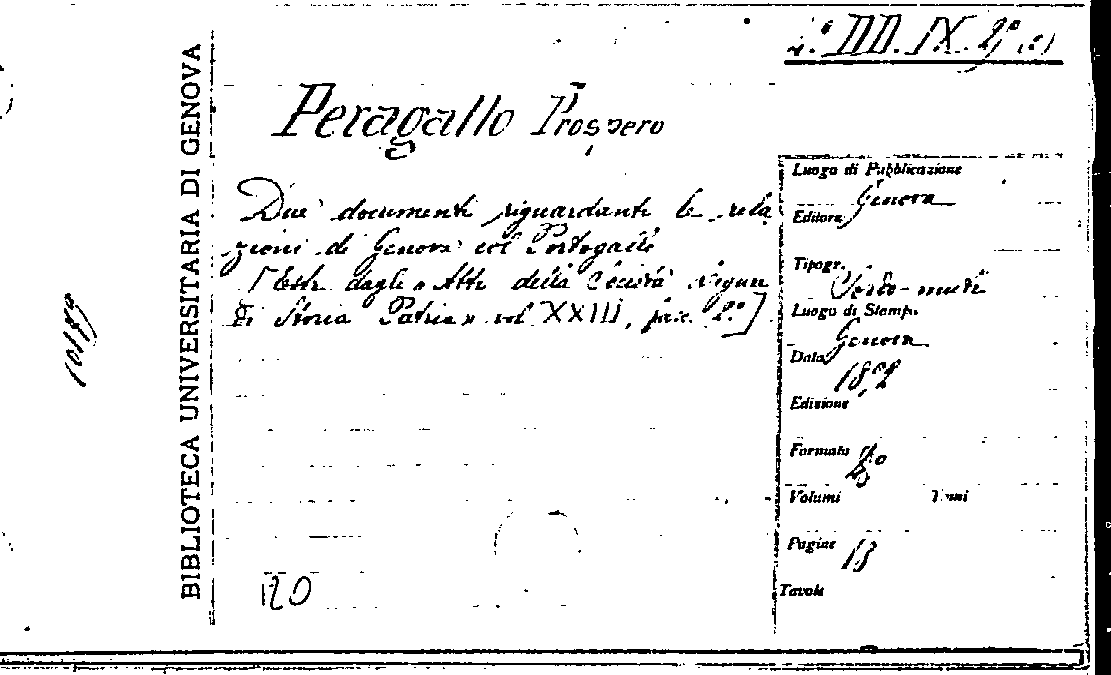 DD. IX. 29 (2)
Peragallo Prospero
Due documenti riguardanti le rela
zioni di Genova col Portogallo
[Estr. dagli « Atti della Società Ligure
di Storia Patria » vol XXIII, fasc. 2.°]
120
BIBLIOTECA UNIVERSITARIA DI GENOVA
Luogo di Pubblicazione
Genova
Editore
Tipogr.
Sordo-muti
Luogo di Stamp.
Genova
Data
1892
Edizione
Formato 8°
Volumi Tomi
Pagine 13
Tavole